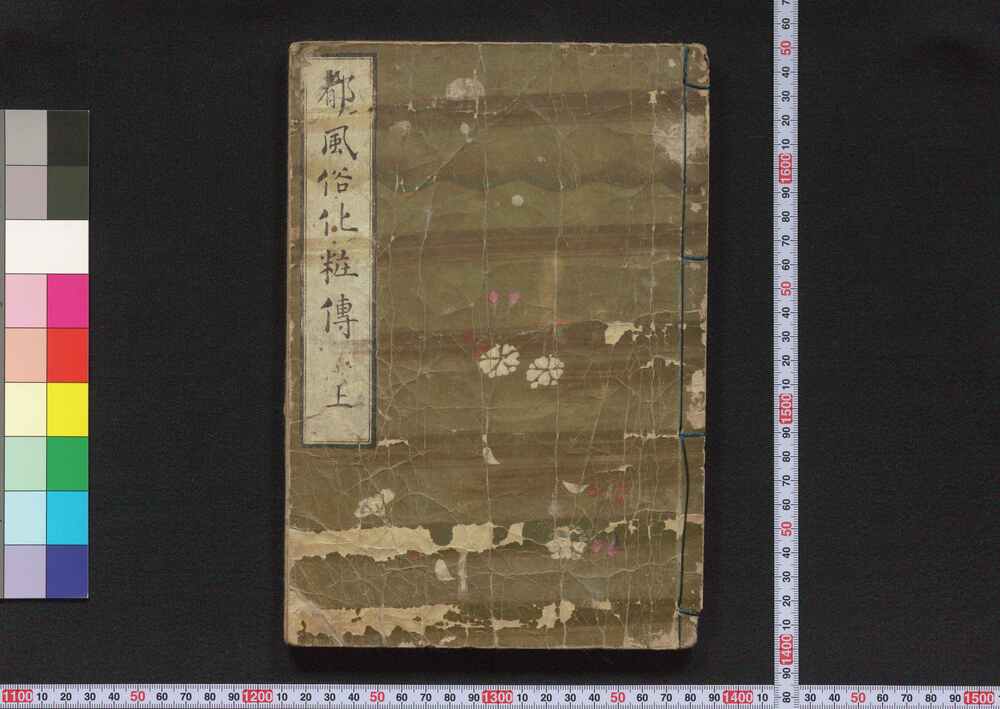 都風俗化粧傳
上
60 50 40 30 20 10 1600 90 80 70 60 50 40 30 20 10 1500 90 80 70 60 50 40 30 20 10 1400 90 80
1100 10 20 30 40 50 60 70 80 90 1200 10 20 30 40 50 60 70 80 90 1300 10 20 30 40 50 60 70 80 90 1400 10 30 40 50 60 70 80 90 1500